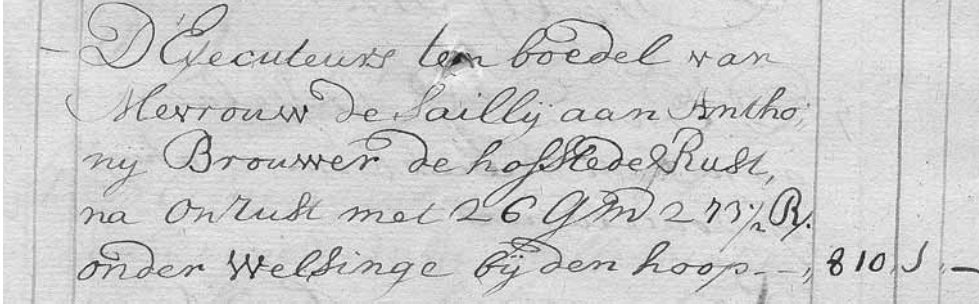 – D'Executeurs ten boedel van
Mevrouw de Sailly aan Antho,
nij Brouwer de hofstede Rust,
na onrust met 26 Gm 273½ R.
onder Welsinge bij den hoop --, 810, 5, –